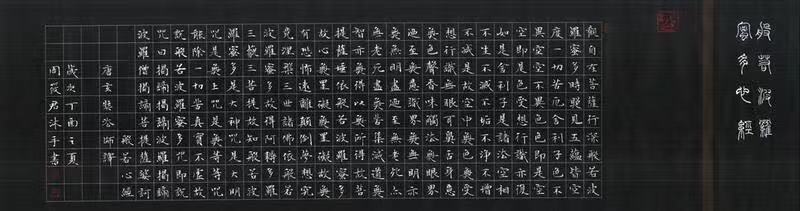 般若波羅
蜜多心經
觀自在菩薩行深般若波
羅蜜多時照見五蘊皆空
度一切苦厄舍利子色不
異空空不異色色即是空
空即是色受想行識亦復
如是舍利子是諸法空相
不生不滅不垢不淨不增
不減是故空中無色無受
想行識無眼耳鼻舌身意
無色聲香味觸法無眼界
乃至無意識界無無明亦
無無明盡乃至無老死亦
無老死盡無苦集滅道無
智亦無得以無所得故菩
提薩埵依般若波羅蜜多
故心無罣礙無罣礙故無
有恐怖遠離顛倒夢想究
竟涅槃三世諸佛依般若
波羅蜜多故得阿耨多羅
三藐三菩提故知般若波
羅蜜多是大神咒是大明
咒是無上咒是無等等咒
能除一切苦真實不虛故
說般若波羅蜜多咒即說
咒曰揭諦揭諦波羅揭諦
波羅僧揭諦菩提薩婆訶
般若心經
唐玄奘法師譯
歲次丁酉之夏
周筱君沐手書